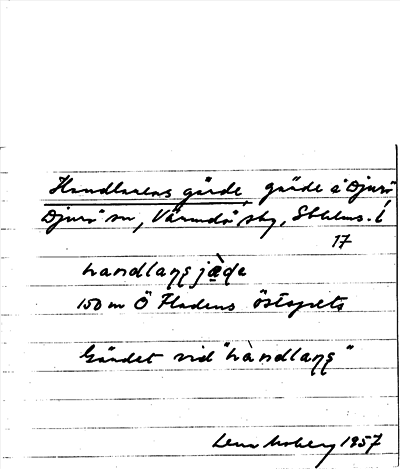 Handlarens gärde, gärde å Djurö
Djurö sn, Värmdö sky, Sthlms. l
17
handlaŋsjæ̀ḍe
150 m Ö Fladens östspets
Gärdet vid "hàndlaŋs"
Lena Moberg 1957